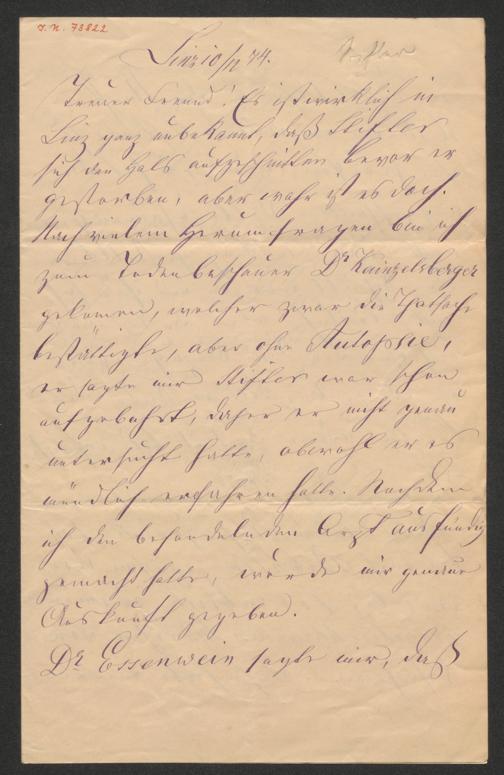 I.N. 73822
Stifter
Linz 10/11 74.
Treuer Freund! Es ist wirklich in
Linz ganz unbekannt, daß Stifter
sich den Hals aufgeschnitten bevor er
gestorben, aber wahr ist es doch.
Nach vielem Herumfragen bin ich
zum Todenbeschauer Dr Kainzelsberger
gekomen, welcher zwar die Thatsache
bestättigte, aber ohne Autopsie,
er sagte mir Stifter war schon
aufgebahrt, daher er nicht genau
untersucht hatte, obwohl er es
mündlich erfahren hatte. Nachdem
ich den behandelnden Arzt ausfündig
gemacht hatte, wurde mir genaue
Auskunft gegeben.
Dr Essenwein sagte mir, daß